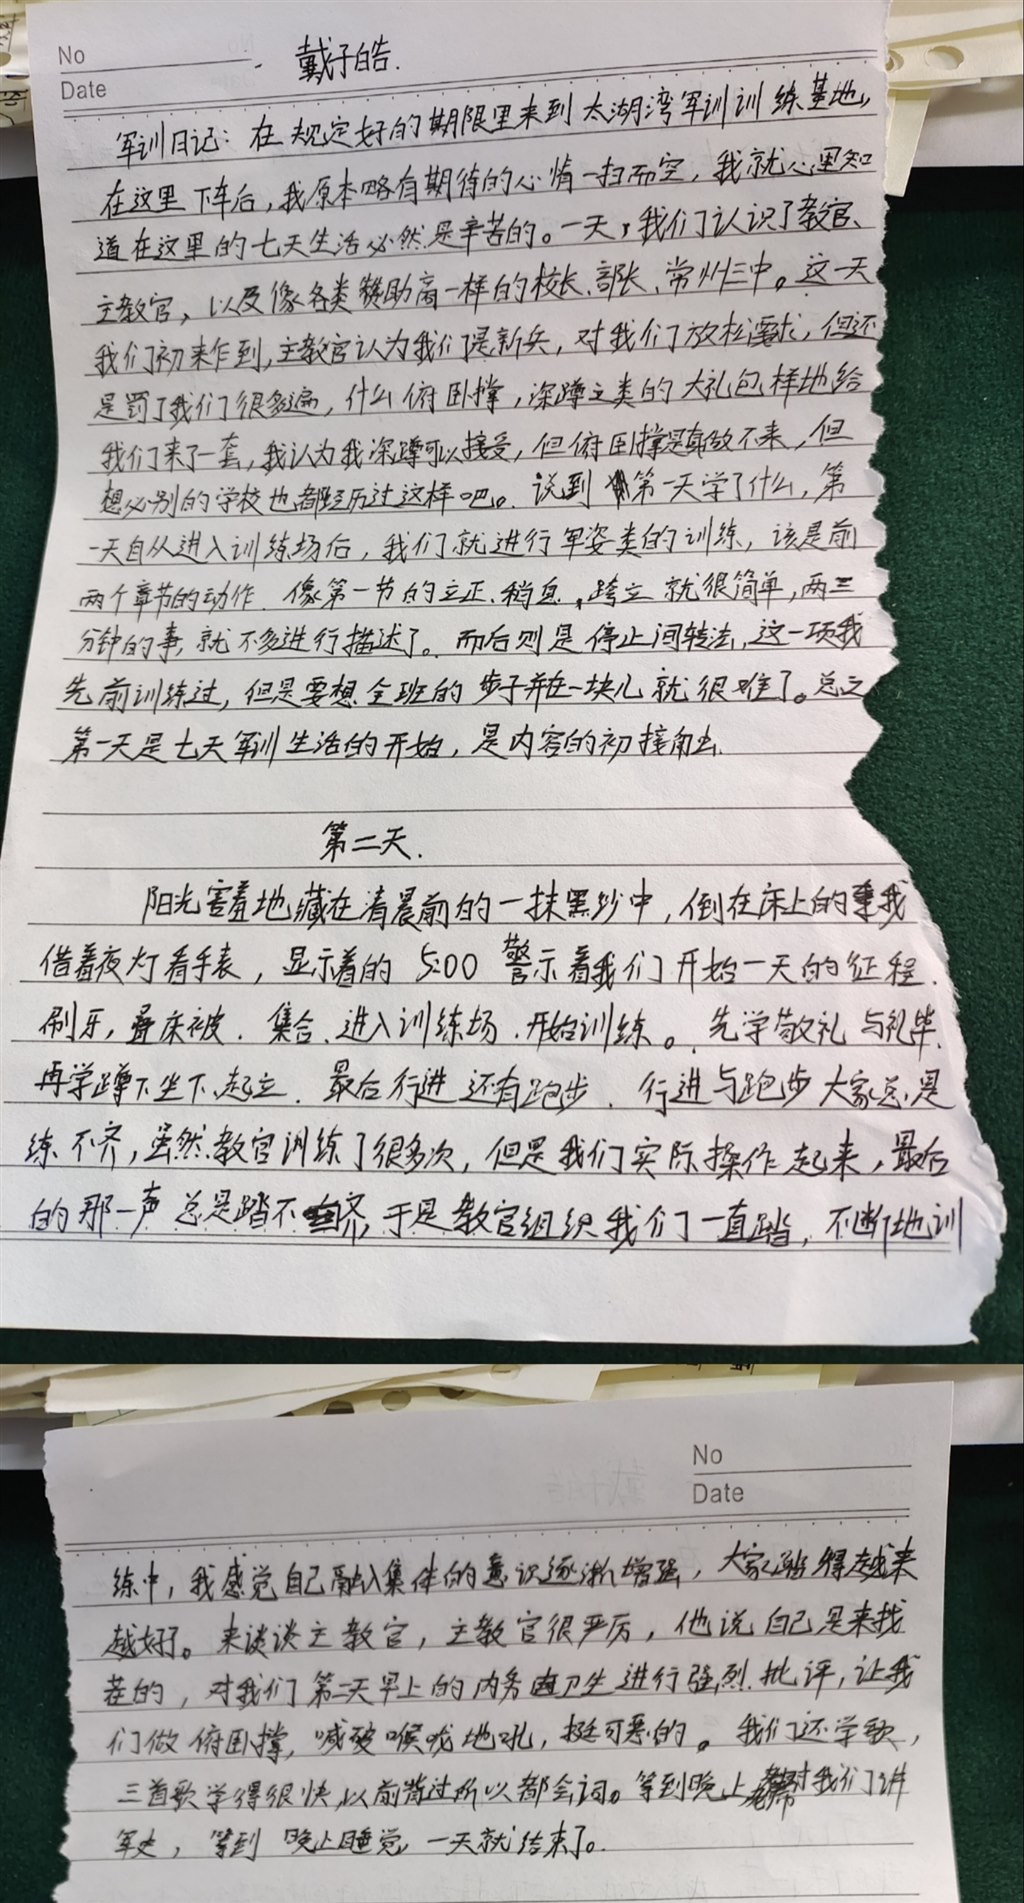 No
Date
戴子皓.
军训日记：在规定好的期限里来到太湖湾军训训练基地，
在这里下车后，我原本略有期待的心情一扫而空，我就心里知
道在这里的七天生活必然是辛苦的。一天，我们认识了教官、
主教官，以及像各类赞助商一样的校长、部长、常州三中。这一天
我们初来乍到，主教官认为我们是新兵，对我们放松要求，但还
是罚了我们很多遍，什么俯卧撑，深蹲之类的大礼包样地给
我们来了一套，我认为我深蹲可以接受，但俯卧撑是真做不来，但
想必别的学校也都经历过这样吧。说到第一天学了什么，第
一天自从进入训练场后，我们就进行军姿类的训练，该是前
两个章节的动作.像第一节的立正、稍息，跨立就很简单，两三
分钟的事，就不多进行描述了。而后则是停止间转法，这一项我
先前训练过，但是要想全班的步子并在一块儿就很难了。总之
第一天是七天军训生活的开始，是内容的初接触.
第二天.
阳光害羞地藏在清晨前的一抹黑纱中，倒在床上的我
借着夜灯看手表，显示着的 5:00 警示着我们开始一天的征程.
刷牙，叠床被.集合、进入训练场.开始训练。先学敬礼与礼毕、
再学蹲下坐下、起立.最后行进还有跑步.行进与跑步大家总是
练不齐，虽然教官训练了很多次，但是我们实际操作起来，最后
的那一声总是踏不齐，于是教官组织我们一直踏，不断地训
No
Date
练中，我感觉自己融入集体的意识逐渐增强，大家踏得越来
越好了。来谈谈主教官，主教官很严厉，他说自己是来找
茬的，对我们第二天早上的内务卫生进行强烈批评，让我
们做俯卧撑，喊破喉咙地吼，挺可恶的。我们还学歌，
三首歌学得很快，以前背过所以都会词。等到晚上对我们讲
军史，等到晚上睡觉，一天就结束了。